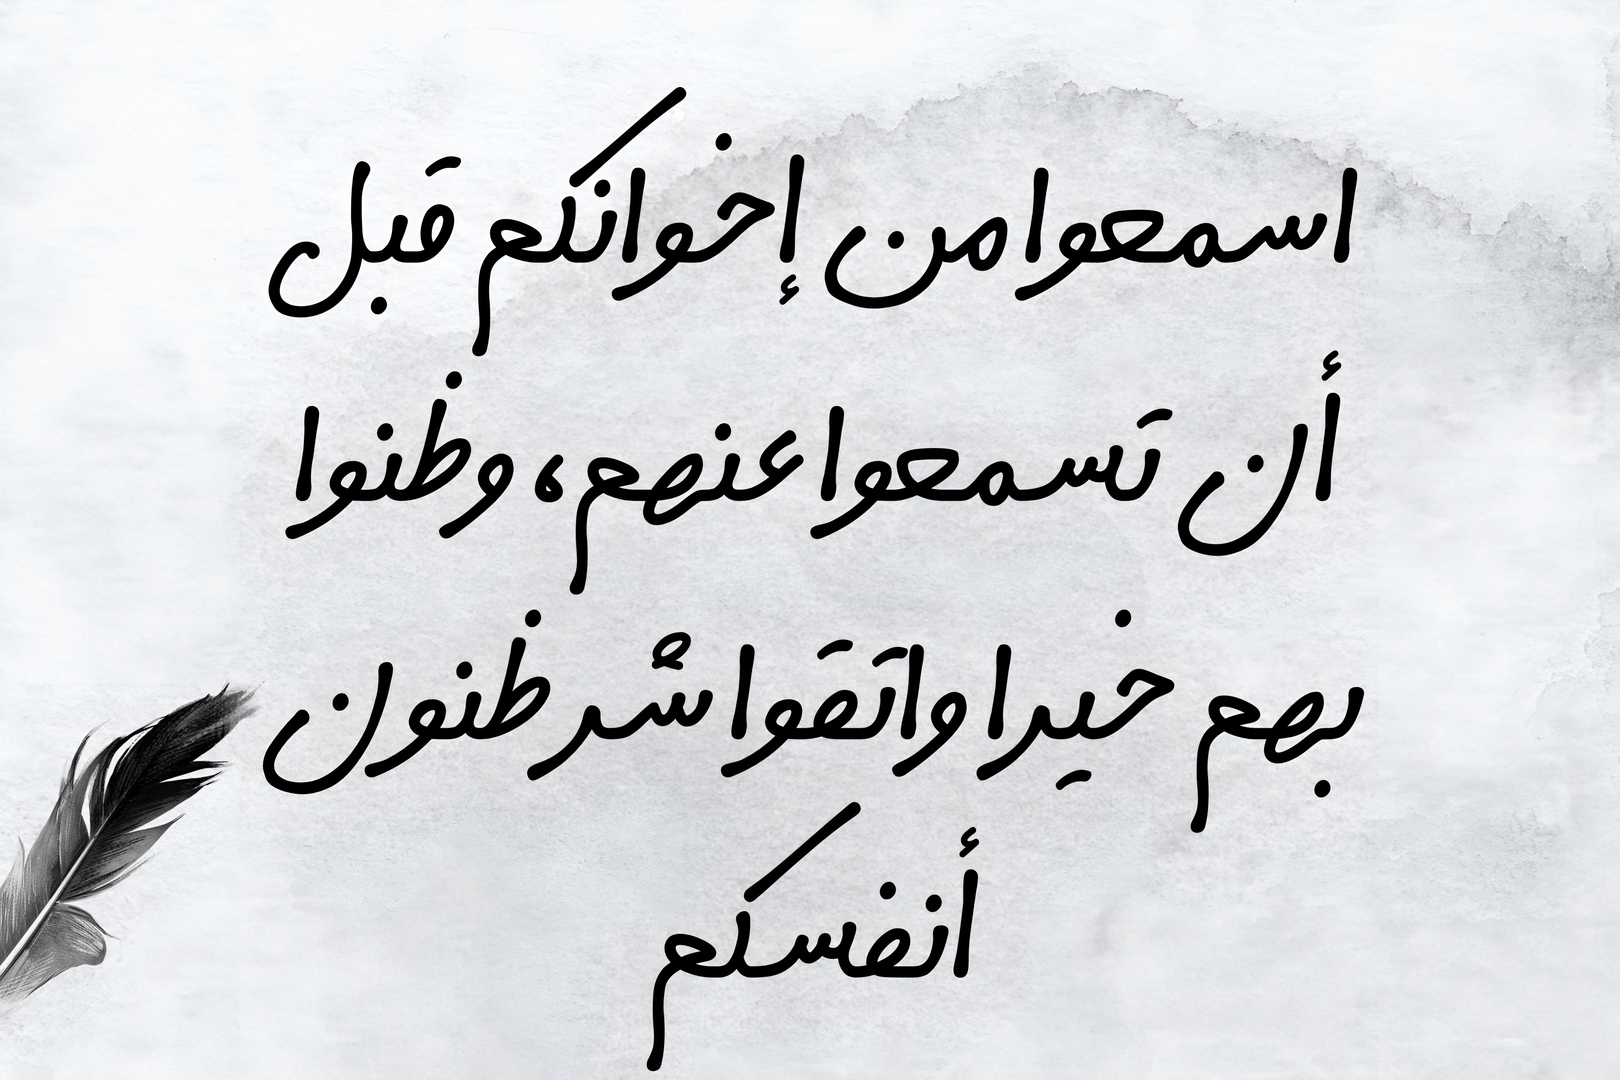 اسمعوا من إخوانكم قبل
أن تسمعوا عنهم، وظنوا
بهم خيرا واتقوا شر ظنون
أنفسكم